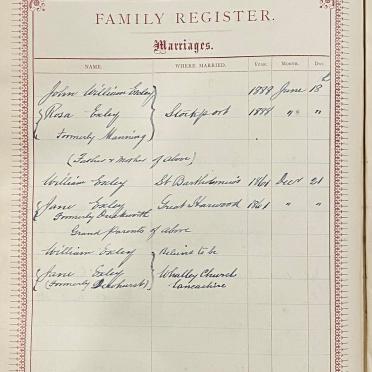 FAMILY REGISTER.
Marriages.
NAME. WHERE MARRIED. YEAR. MONTH. DAY.
John William Exley 1888 June 18
Rosa Exley Stockport 1888 " "
Formerly Manning
(Father & Mother of above)
William Exley St Bartholomew's 1861 Decr 21
Jane Exley Great Harwood 1861 " "
Formerly Duckworth
Grand Parents of above
William Exley Believed to be
Jane Exley Whalley Church
(Formerly Dewhurst) Lancashire